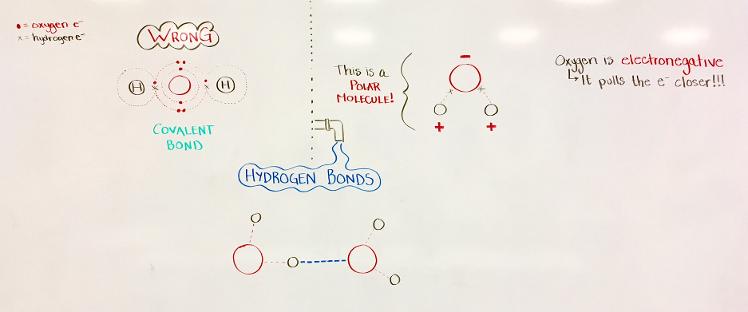 • = oxygen e⁻
x = hydrogen e⁻
WRONG
H
H
COVALENT
BOND
This is a
POLAR
MOLECULE!
−
+
+
Oxygen is electronegative
↳ It pulls the e⁻ closer!!!
HYDROGEN BONDS